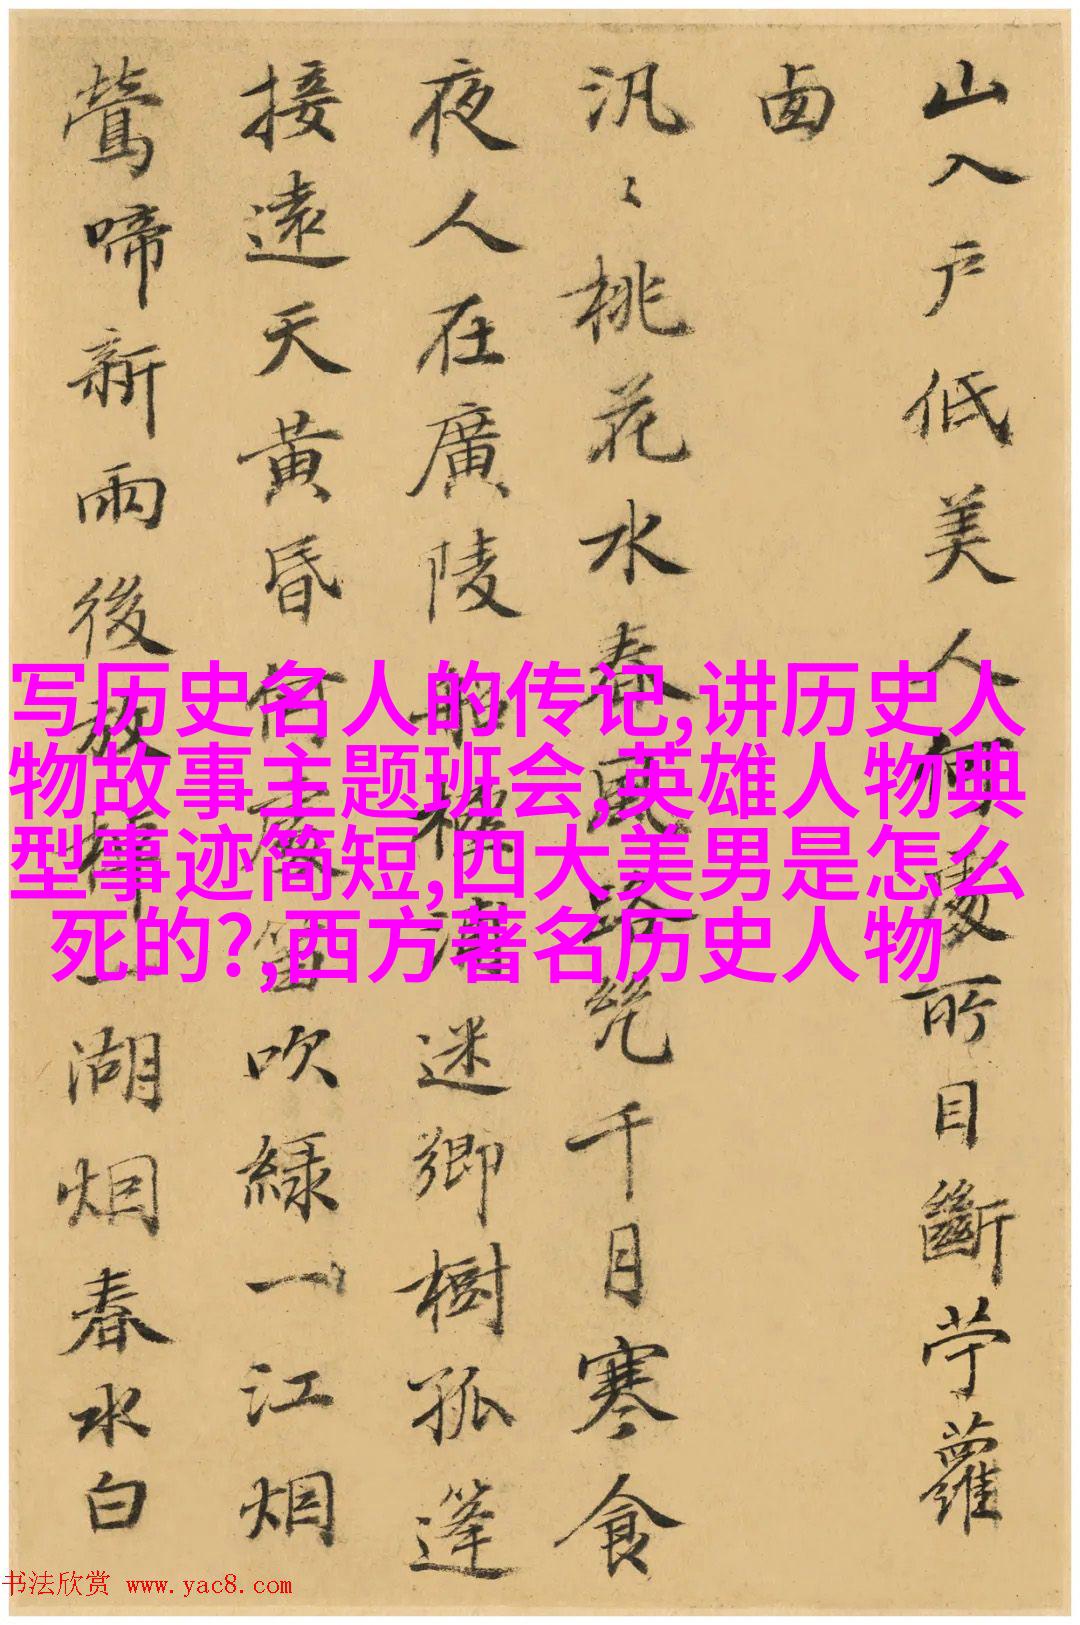 山入戶低美人何處所目斷苧蘿
卥
汎〻桃花水春風路絕千月寒食
夜人在廣陵船極浦迷鄉樹孤篷
接遠天黃昏何處笛吹綠一江烟
鶯啼新雨後放棹一湖烟春水白
写历史名人的传记,讲历史人
物故事主题班会,英雄人物典
型事迹简短,四大美男是怎么
死的?,西方著名历史人物
书法欣赏 www.yac8.com